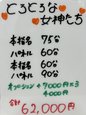 とろとろな
女神たち
本指名 75分
パネル 60分
本指名 60分
パネル 90分
オプション + 7000円×3
4000円
合計
62,000円